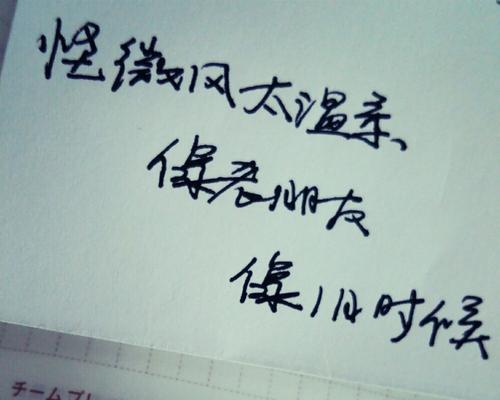 怪微风太温柔、
像老朋友
像小时候
チームプ